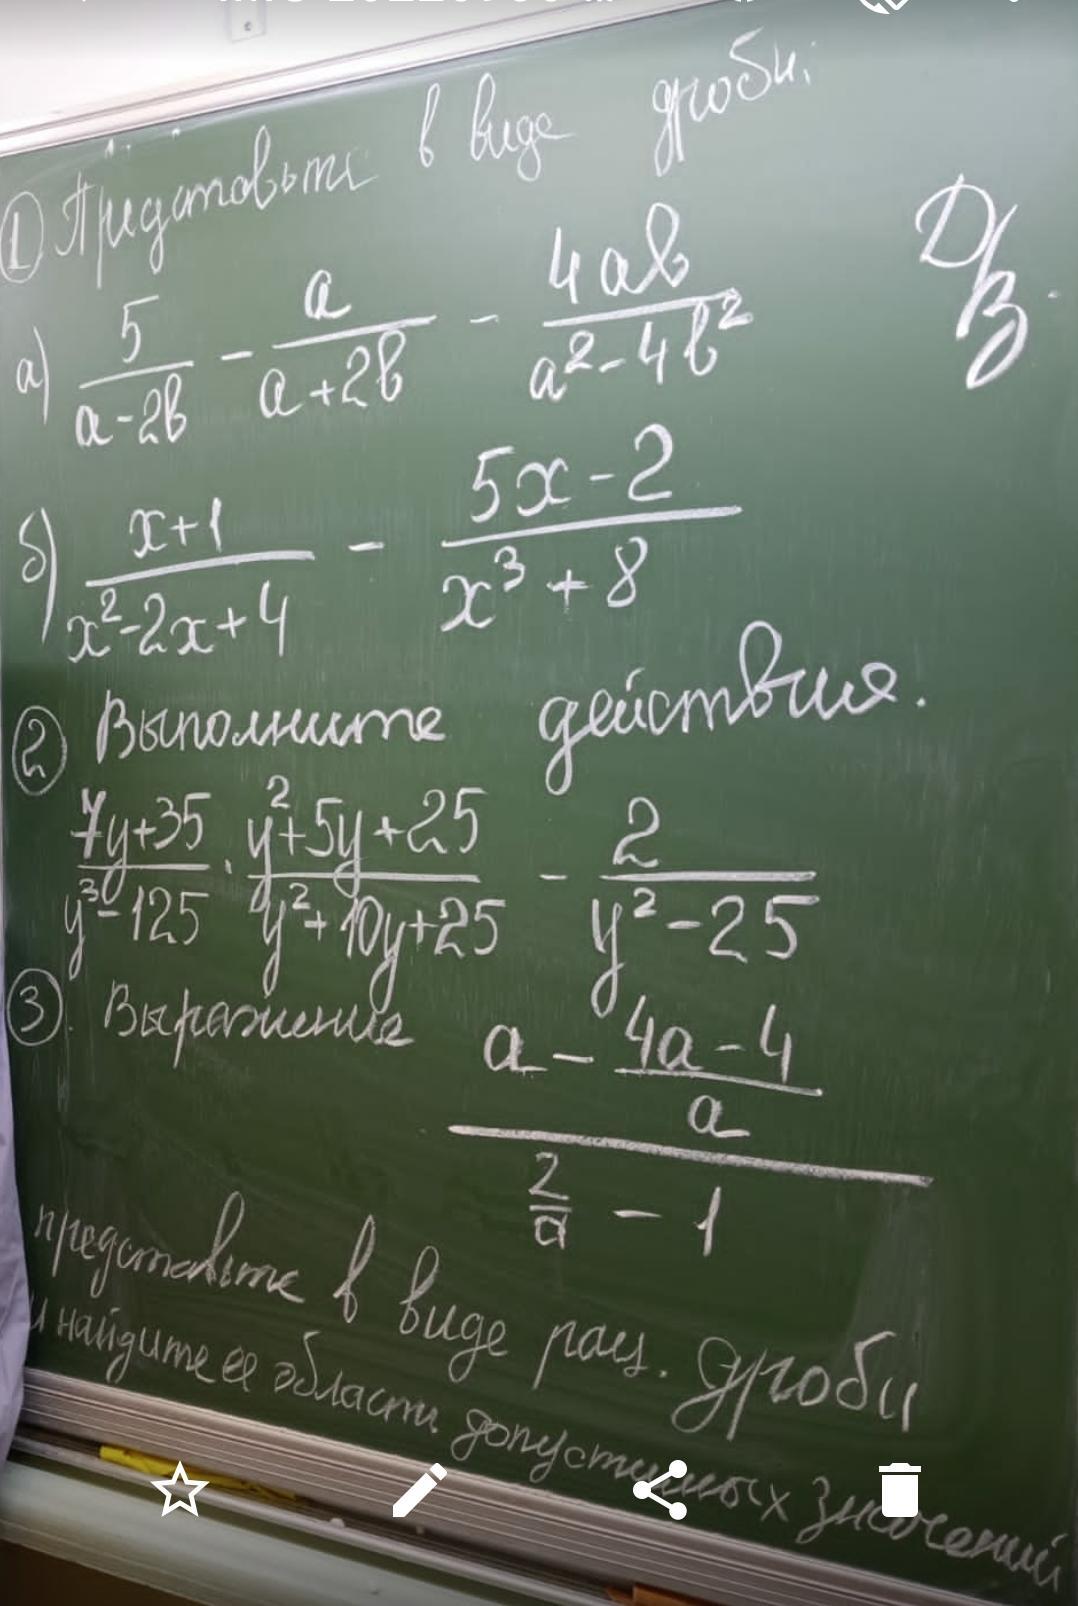 ① Представьте в виде дроби:
Д/З.
а) 5/(a-2b) - a/(a+2b) - 4ab/(a²-4b²)
б) (x+1)/(x²-2x+4) - (5x-2)/(x³+8)
② Выполните действия.
(7y+35)/(y³-125) · (y²+5y+25)/(y²+10y+25) - 2/(y²-25)
③. Выражение (a - (4a-4)/a)/(2/a - 1)
представьте в виде рац. дроби
и найдите ее области допустимых значений